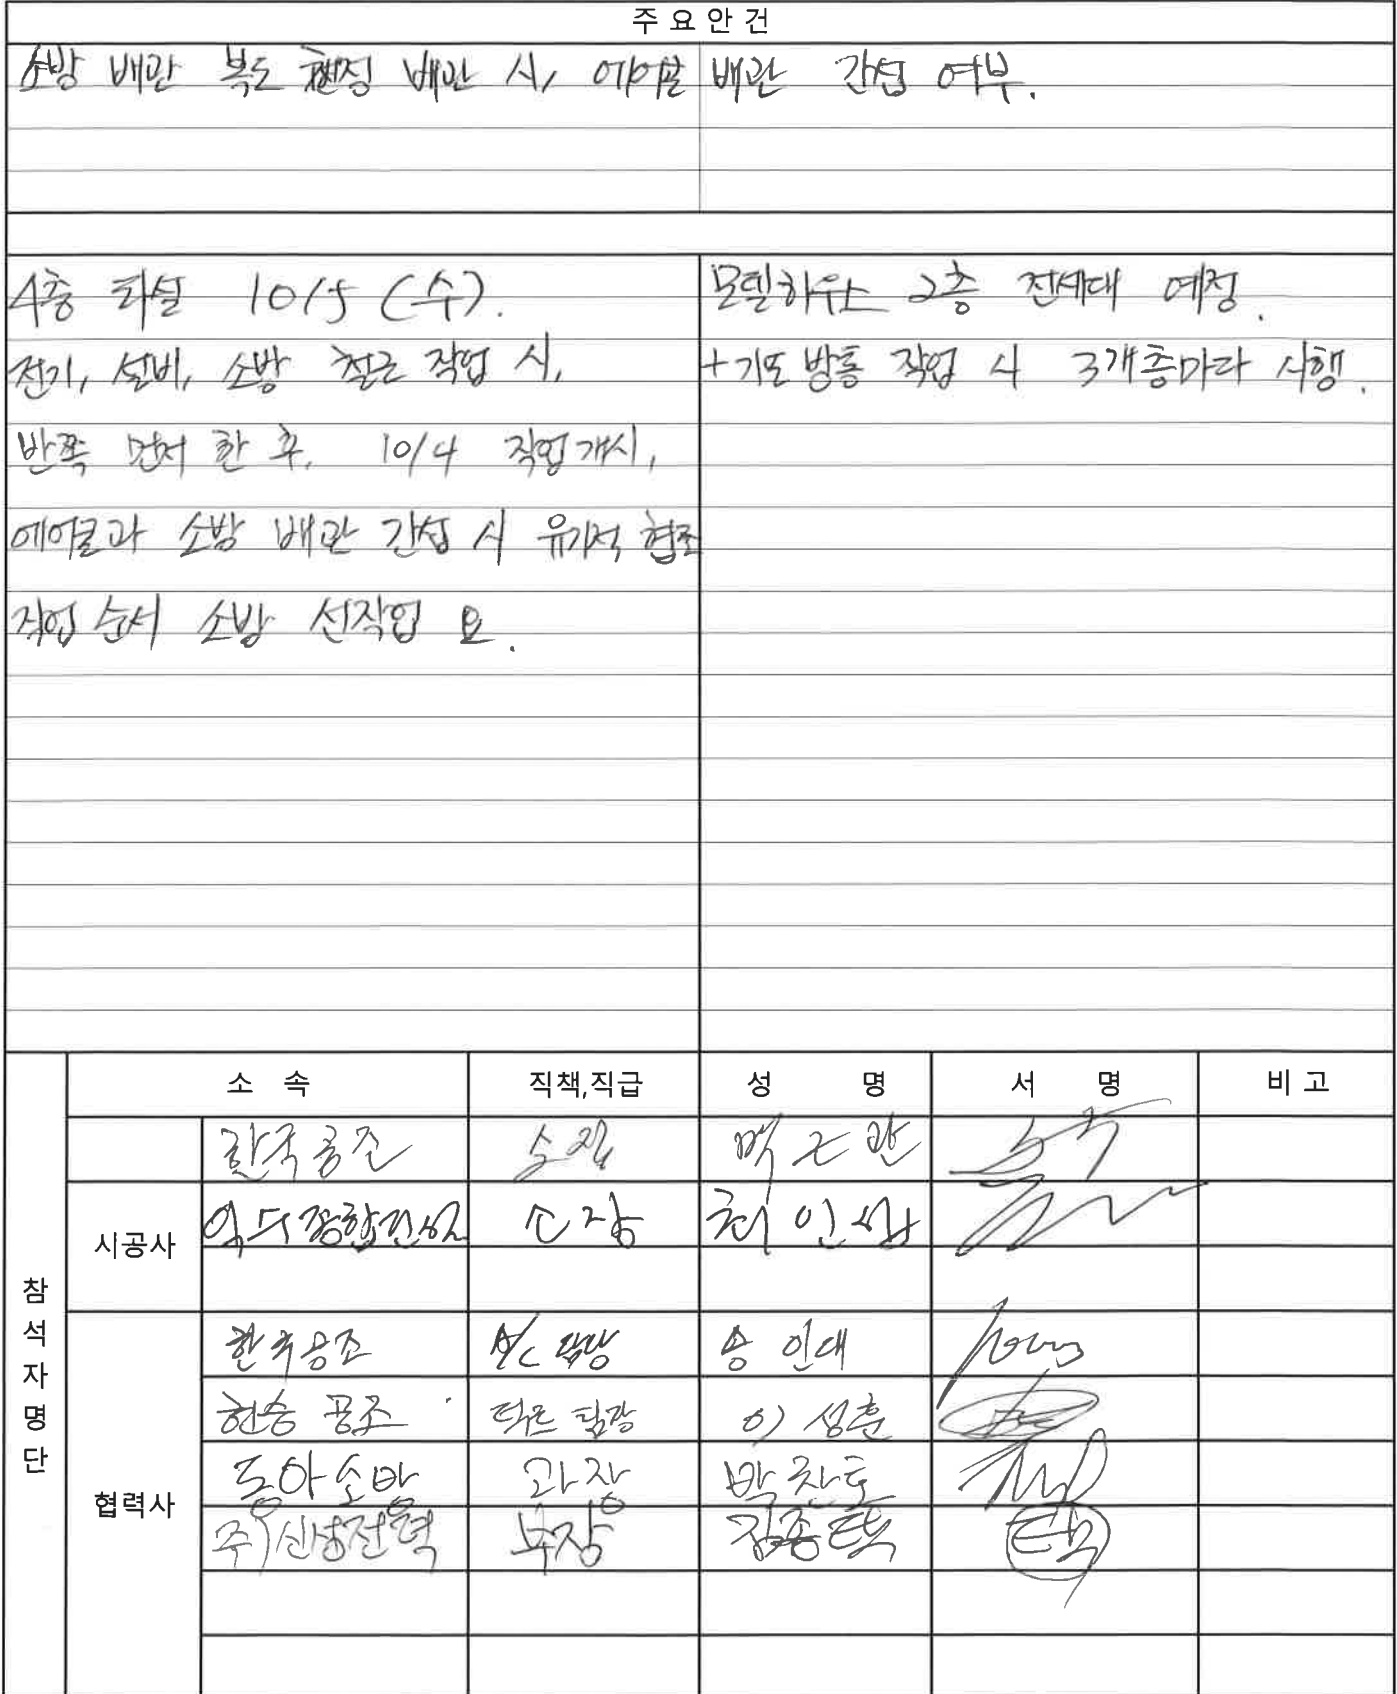 주 요 안 건
소방 배관 복도 천정 배관 시, 에어콘 배관 간섭 여부.
4층 타설 10/5 (수).
전기, 설비, 소방 철근 작업 시,
반쪽 먼저 한 후. 10/4 작업개시,
에어콘과 소방 배관 간섭 시 유기적 협조
작업 순서 소방 선작업 요.
모델하우스 2층 전세대 예정.
+기포 방통 작업 시 3개층마다 시행.
참석자명단
소 속 직책,직급 성 명 서 명 비 고
한국공조 소장 백근관
시공사 종합건설 소장 최인섭
협력사
한국공조 A/C 담당 송인대
한승 공조 덕트 팀장 이성훈
동아소방 과장 박찬호
주)신성전력 부장 김종택 택